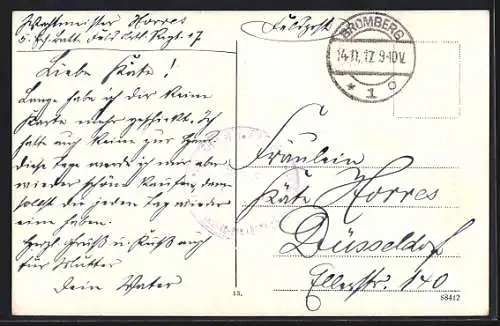 Wachtmeister Horres
5. Ers. Batt. Feld Artl. Regt. 17
Feldpost
BROMBERG
14.11.17. 9-10V.
* 1 c
Liebe Käte!
Lange habe ich dir keine
Karte mehr geschickt. Ich
hatte auch keine zur Hand
diese Tage werde ich mir aber
wieder schöne kaufen, dann
sollst du jeden Tag wieder
eine haben.
Herzl. Gruß u. Kuß auch
für Mutter
Dein Vater
Fräulein
Käte Horres
Düsseldorf
Ellerstr. 140
13.
S8412